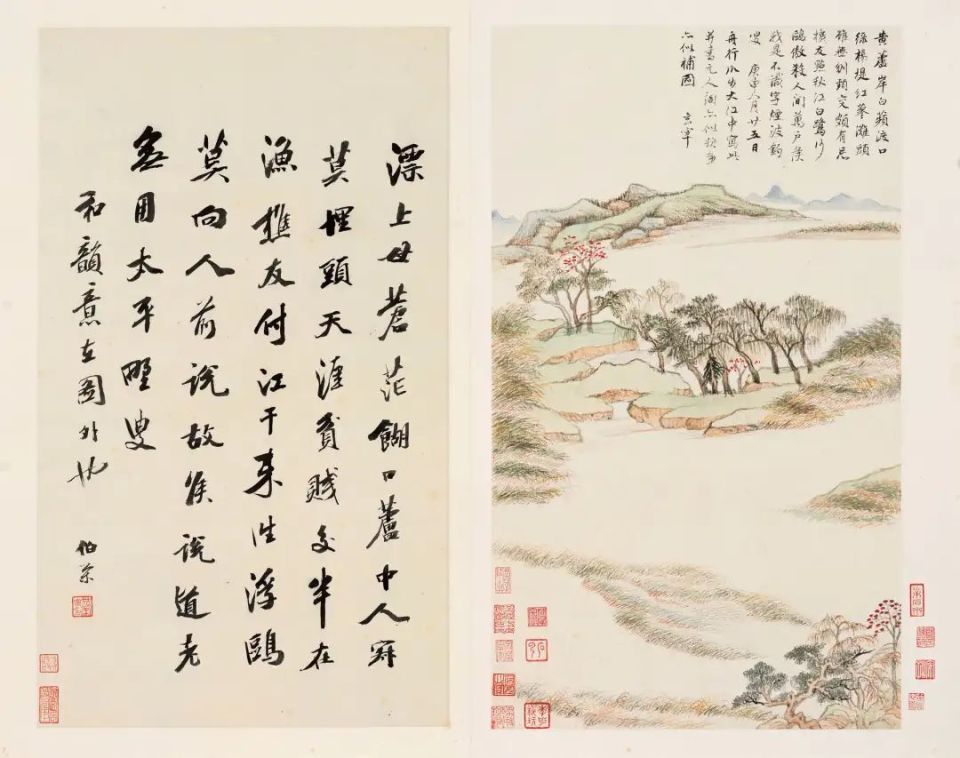 黄蘆岸白蘋渡口
綠楊堤紅蓼灘頭
雖無刎頸交頗有忘
機友點秋江白鷺沙
鷗傲殺人間萬戶侯
我是不識字煙波釣
叟 庚申八月廿五日
舟行瓜步大江中寫此
并書元人詞亦似題畫
亦似補圖 玄宰
漂上母蒼茫餬口蘆中人寂
莫埋頭天涯貧賤交半在
漁樵友付江干來往浮鷗
莫向人前說故侯說道老
無用太平野叟
和韻意在圖外也 伯榮